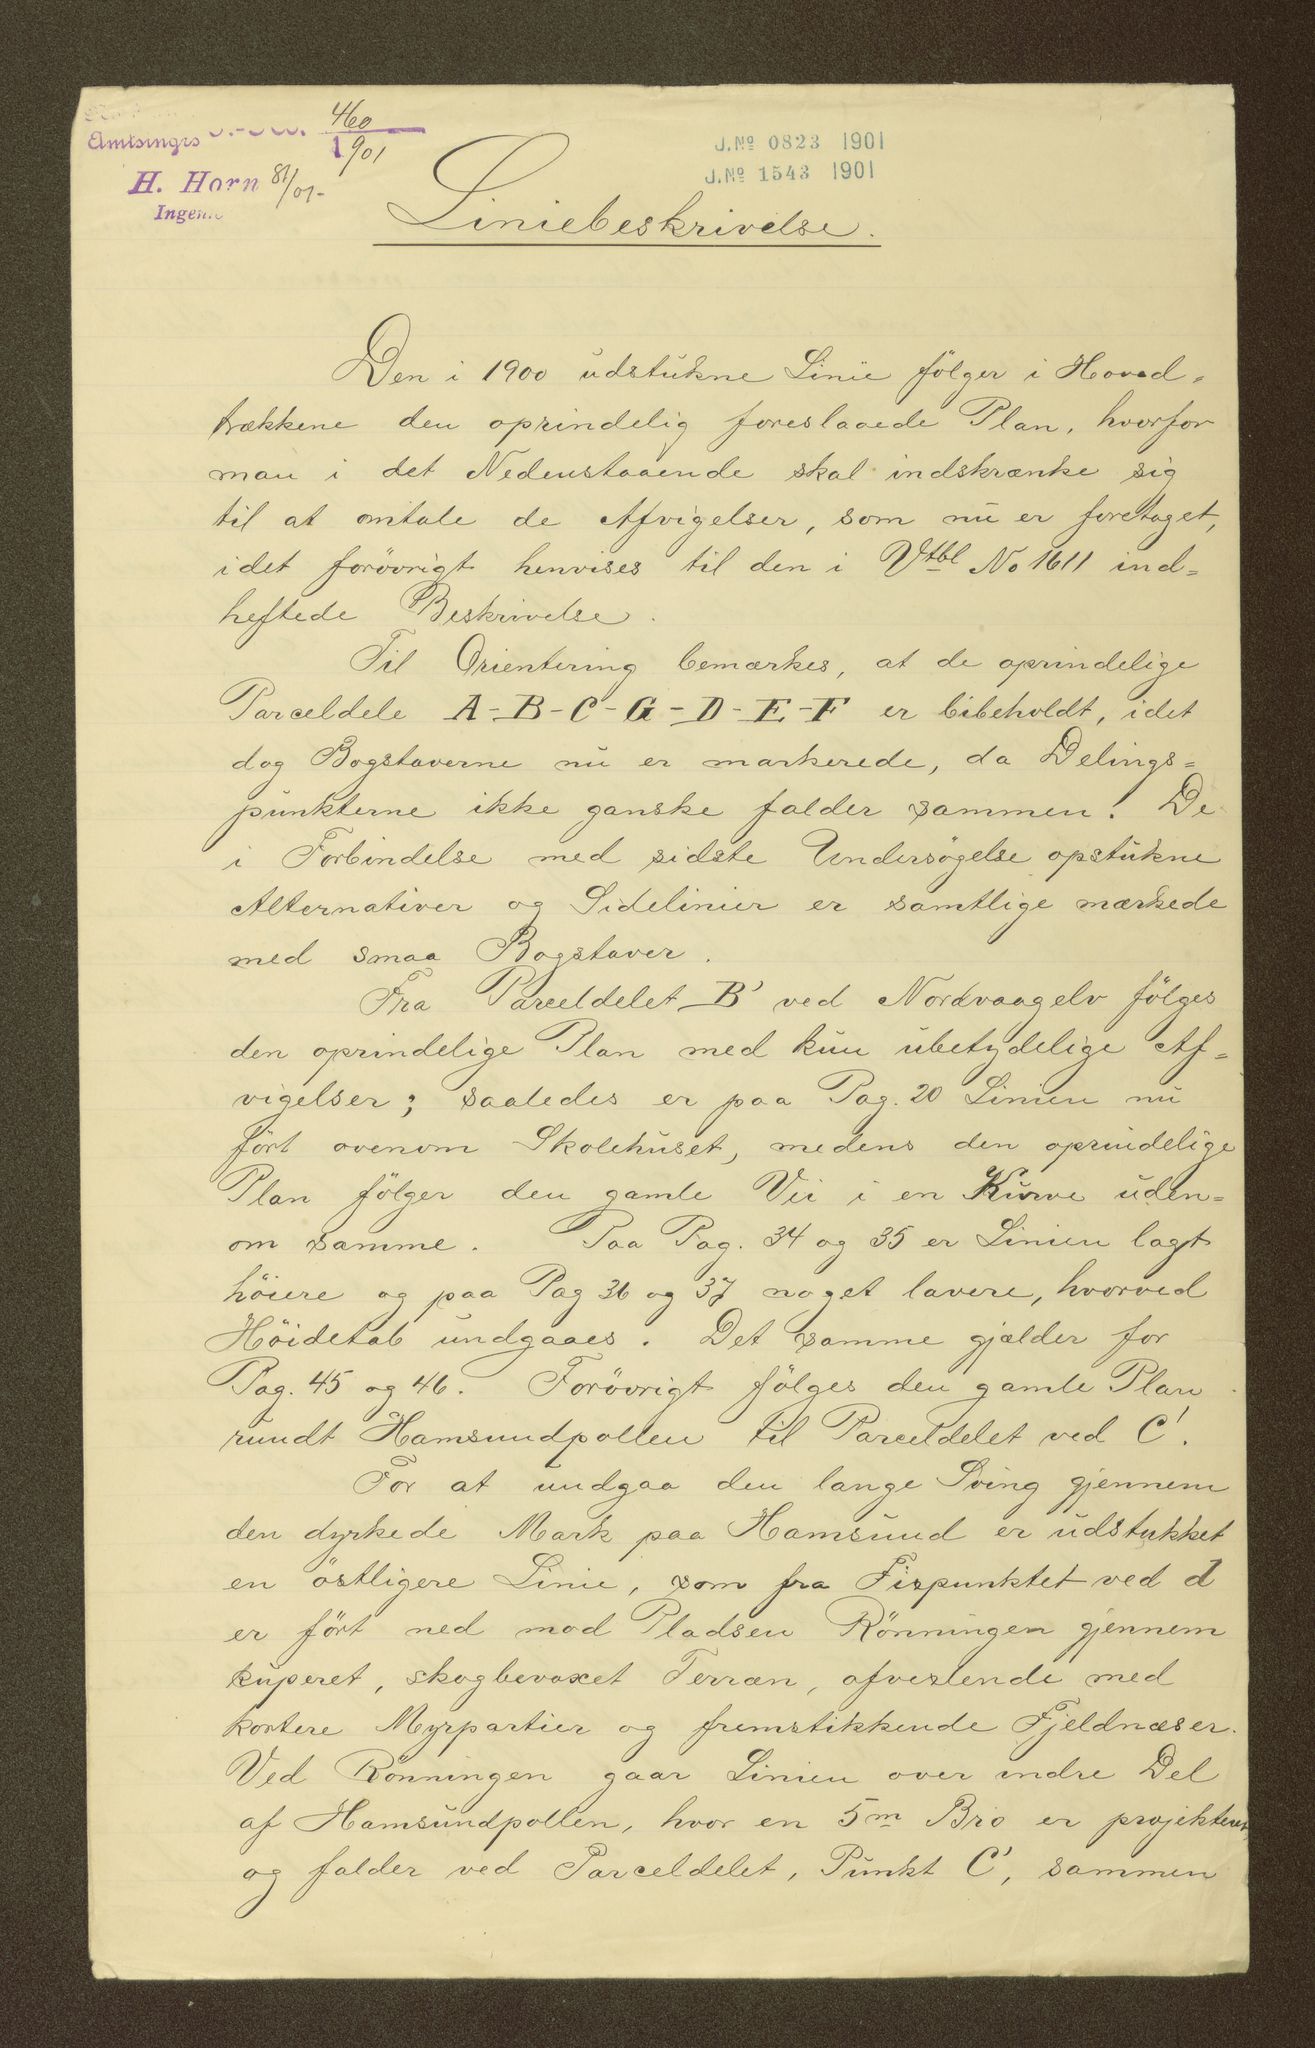 Amtsingrs J.-No. 460
1901
H. Horn 81/01-
Ingeni
J.No 0823 1901
J.No 1543 1901
Liniebeskrivelse.
Den i 1900 udstukne Linie fölger i Hoved-
trækkene den oprindelig foreslaaede Plan, hvorfor
man i det Nedenstaaende skal indskrænke sig
til at omtale de Afvigelser, som nu er foretaget,
idet forövrigt henvises til den i Vtbl No 1611 ind=
heftede Beskrivelse.
Til Orientering bemærkes, at de oprindelige
Parceldele A-B-C-G-D-E-F er bibeholdt, idet
dog Bogstaverne nu er markerede, da Delings=
punkterne ikke ganske falder sammen. De
i Forbindelse med sidste Undersögelse opstukne
Alternativer og Sidelinier er samtlige mærkede
med smaa Bogstaver.
Fra Parceldelet B' ved Nordvaagelv fölges
den oprindelige Plan med kun ubetydelige Af=
vigelser; saaledes er paa Pag. 20 Linien nu
fört ovenom Skolehuset, medens den oprindelige
Plan fölger den gamle Vei i en Kurve uden=
om samme. Paa Pag. 34 og 35 er Linien lagt
höiere og paa Pag 36 og 37 noget lavere, hvorved
Höidetab undgaaes. Det samme gjælder for
Pag. 45 og 46. Forövrigt fölges den gamle Plan
rundt Hamsundpollen til Parceldelet ved C'.
For at undgaa den lange Sving gjennem
den dyrkede Mark paa Hamsund er udstukket
en östligere Linie, som fra Fixpunktet ved d
er fört ned mod Pladsen Rönningen gjennem
kuperet, skogbevoxet Terræn, afvexlende med
kortere Myrpartier og fremstikkende Fjeldnæser.
Ved Rönningen gaar Linien over indre Del
af Hamsundpollen, hvor en 5m Bro er projekteret,
og falder ved Parceldelet, Punkt C', sammen